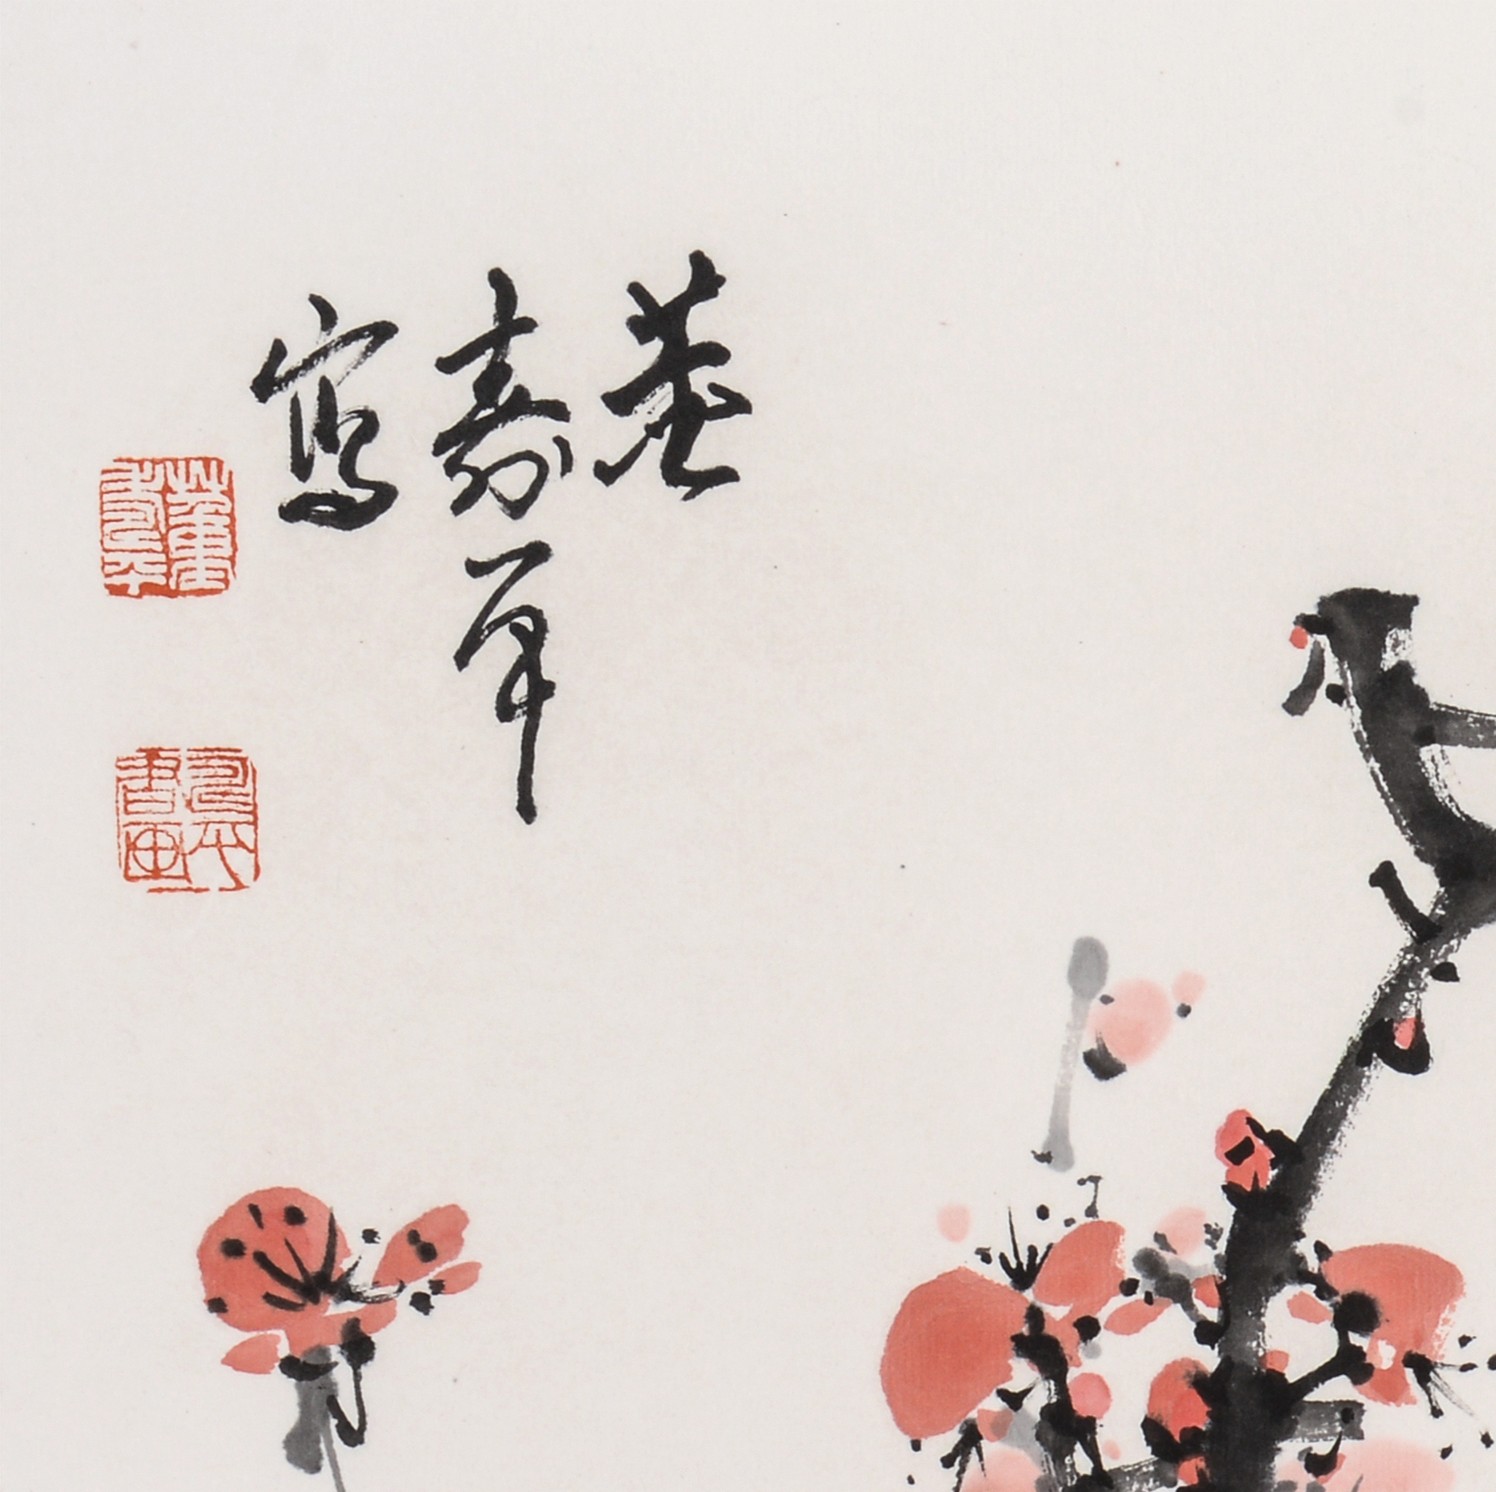 董
壽平
寫
董
壽平
書畫